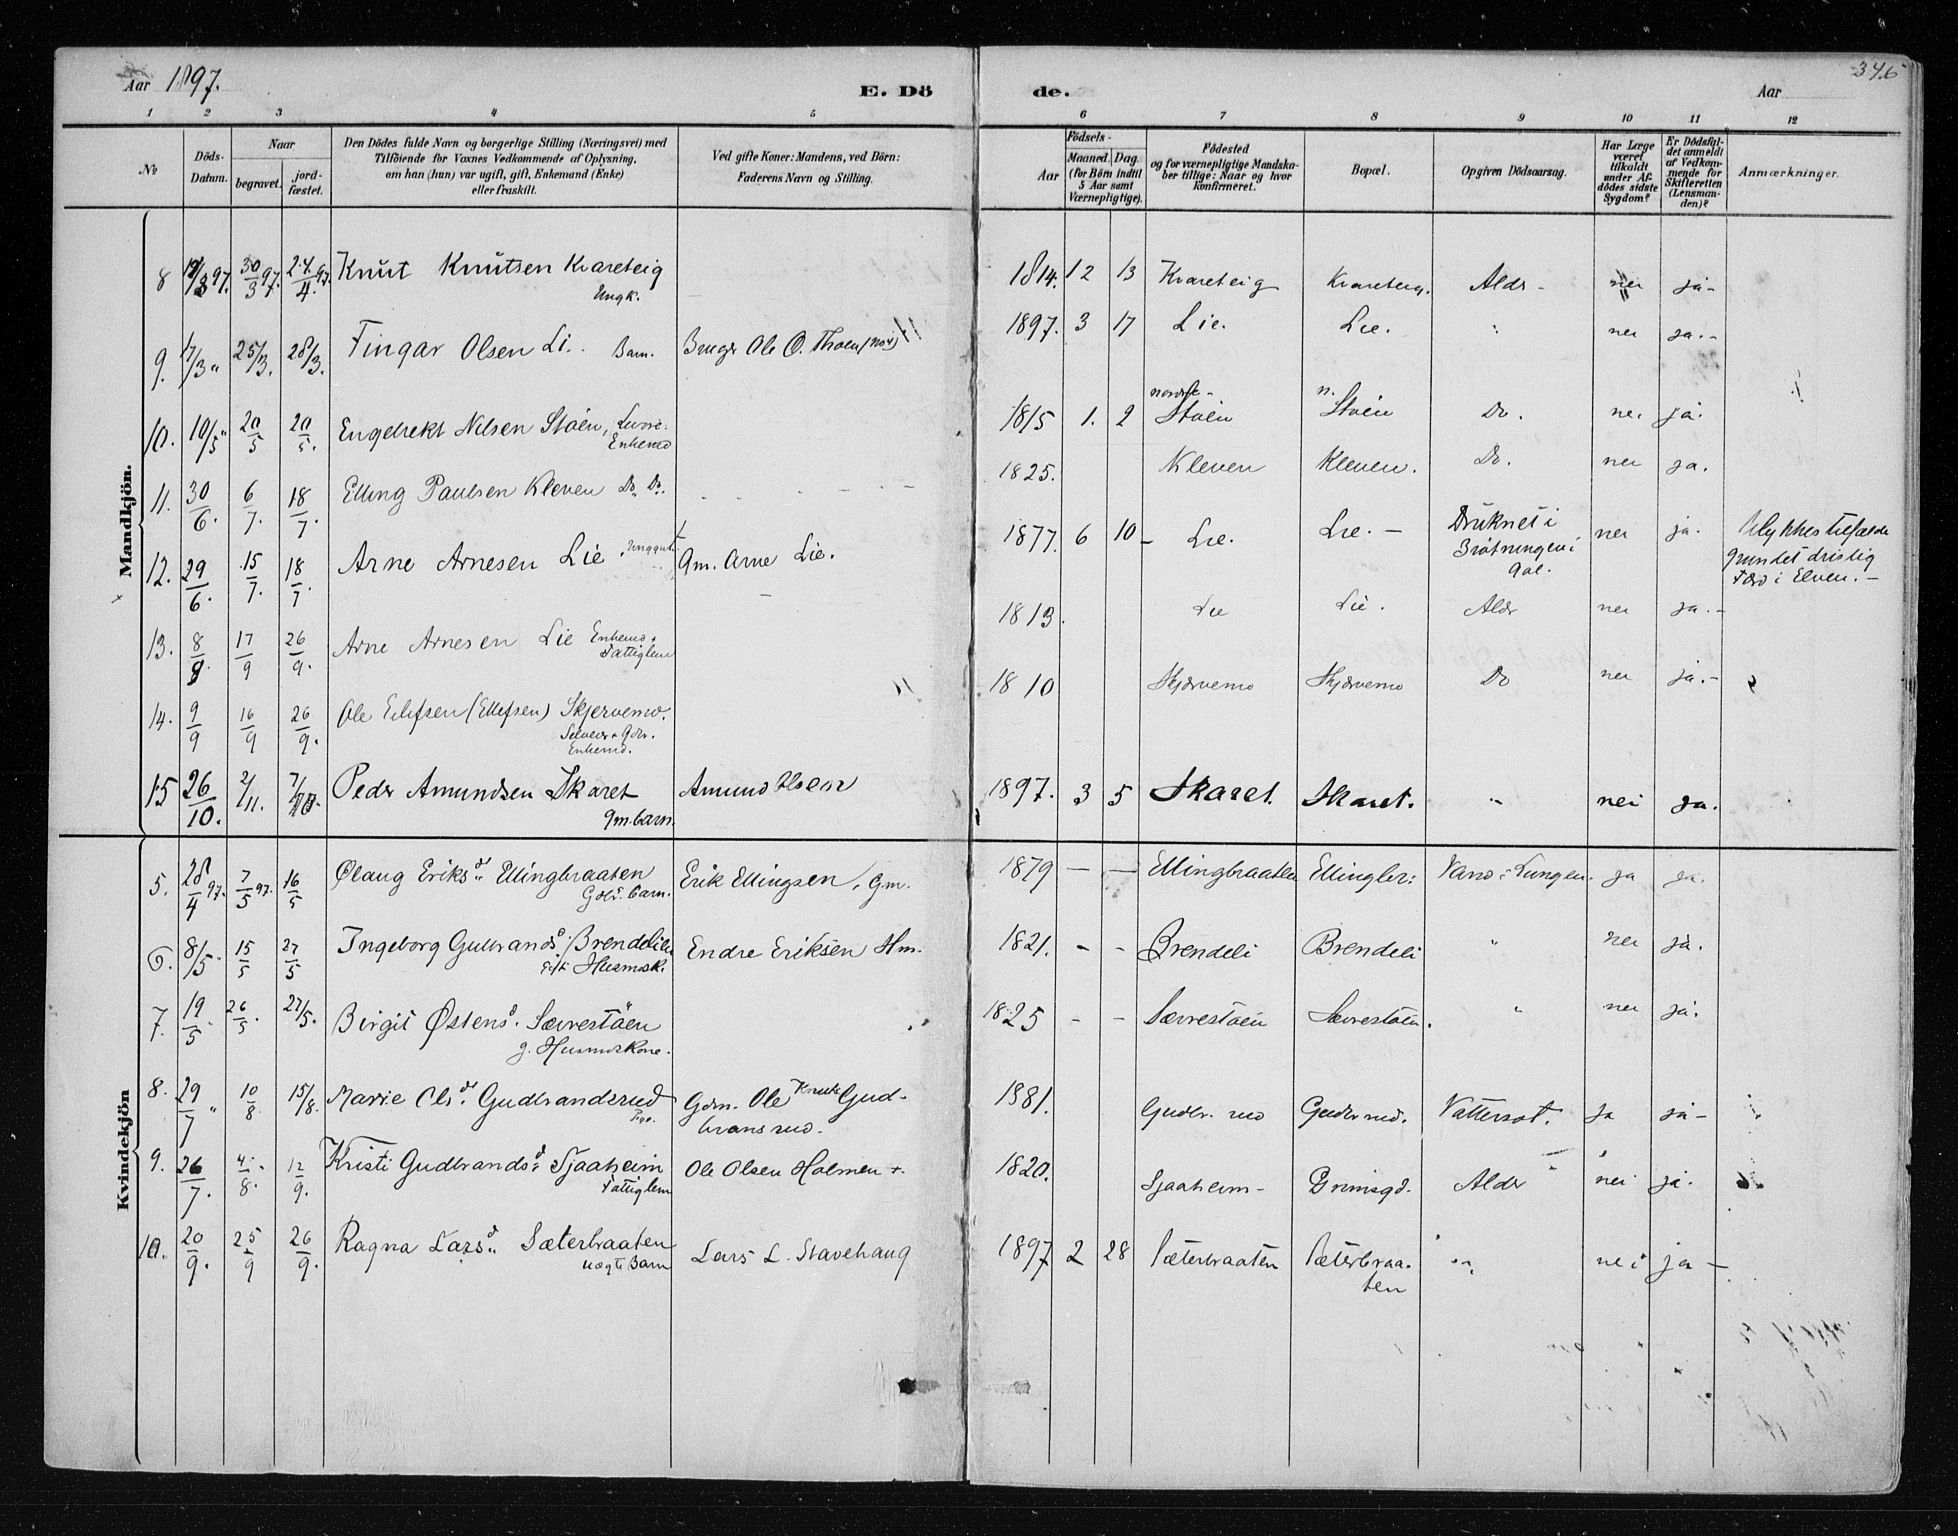 Aar 1897.
E. Dö
de.
Aar
346
1 2 3 4 5 6 7 8 9 10 11 12
No
Döds-Datum.
Naar
begravet.
jord-fæstet.
Den Dödes fulde Navn og borgerlige Stilling (Næringsvei) med
Tilföiende for Voxnes Vedkommende af Oplysning,
om han (hun) var ugift, gift, Enkemand (Enke)
eller fraskilt.
Ved gifte Koner: Mandens, ved Börn:
Faderens Navn og Stilling.
Födsels-
Aar
Maaned. Dag.
(for Börn indtil
5 Aar samt
Værnepligtige).
Födested
og for værnepligtige Mandska-
ber tillige: Naar og hvor
konfirmeret.
Bopæl.
Opgiven Dödsaarsag.
Har Læge
været
tilkaldt
under Af-
dödes sidste
Sygdom?
Er Dödsfal-
det anmeldt
af Vedkom-
mende for
Skifteretten
(Lensman-
den)?
Anmærkninger.
Mandkjön.
8 97. 30/3 97. 24/4 97. Knut Knutsen Kvareteig
Ungk.
1814. 12 13 Kvareteig Kvareteig. Alder - nei ja-
9. 17/3 " 25/3. 28/3. Fingar Olsen Li. Barn. Bruger Ole O. Thoen
1897. 3 17 Lie. Lie. " nei ja.-
10. 10/5 " 20/5 20/5. Engebrekt Nilsen Stöen,
Enkemd
1815 1. 2 nordre- Stöen n. Stöen Do. nei ja.
11. 30/6. 6/7. 18/7. Elling Paulsen Kleven Do. Do.
1825. Kleven Kleven. Do. nei ja.
12. 29/6. 15/7. 18/7 Arne Arnesen Lie. UngGut Gm. Arne Lie.
1877. 6 10 Lie. Lie. - Druknet i
Brötningen i
Aal.
nei ja. Ulykkestilfælde
grundet dristig
Færd i Elven. -
13. 8/9. 17/9 26/9. Arne Arnesen Lie Enkemd.
Fattiglem
1813. Lie Lie. Alder nei ja.-
14. 9/9 16/9 26/9. Ole Eilefsen (Ellefsen) Skjervemo.
Selveier Gdbr.
Enkemd.
1810 Skjærvemo Skjærvemo Do nei ja.-
15 26/10. 2/11. Peder Amundsen Skaret
Gm. barn.
Amund
1897. 3 5 Skaret. Skaret. " nei ja.
Kvindekjön
5. 28/4 97. 7/5 97. 16/5 Ølaug Eriksd. Ellingbraaten
Gdbr. barn.
Erik Ellingsen, Gm.
1879 - - Ellingbraaten Ellingbr: Vand i Lungen. ja ja.
6. 8/5. 15/5 27/5 Ingeborg Gulbrandsd. Brendelien
gift Husmsk.
Endre Eriksen Hm.
1821. - - Brendeli Brendeli " nei ja.
7. 19/5. 26/5. 27/5. Birgit Østensd. Sævrestöen
g. Husmskone.
1825 - - Sævrestöen Sævrestöen. " nei ja.
8. 29/7 " 10/8. 15/8. Marie Olsd. Gudbrandsrud
Pige.
Gdm. Ole Knuts Gud-
bransrud.
1881. Gudbr. rud Gudbr rud. Vattersot. ja ja-
9. 26/7. 4/8. 12/9. Kristi Gudbrandsd. Sjaaheim
Fattiglem
Ole Olsen Holmen +.
1820. Sjaaheim- Grimsgd. Alder nei ja.
10. 20/9. 25/9 26/9. Ragna Larsd. Sæterbraaten
uægte Barn
Lars L. Stavehaug
1897 2 28 Sæterbraaten Sæterbraa-
ten
" nei ja -